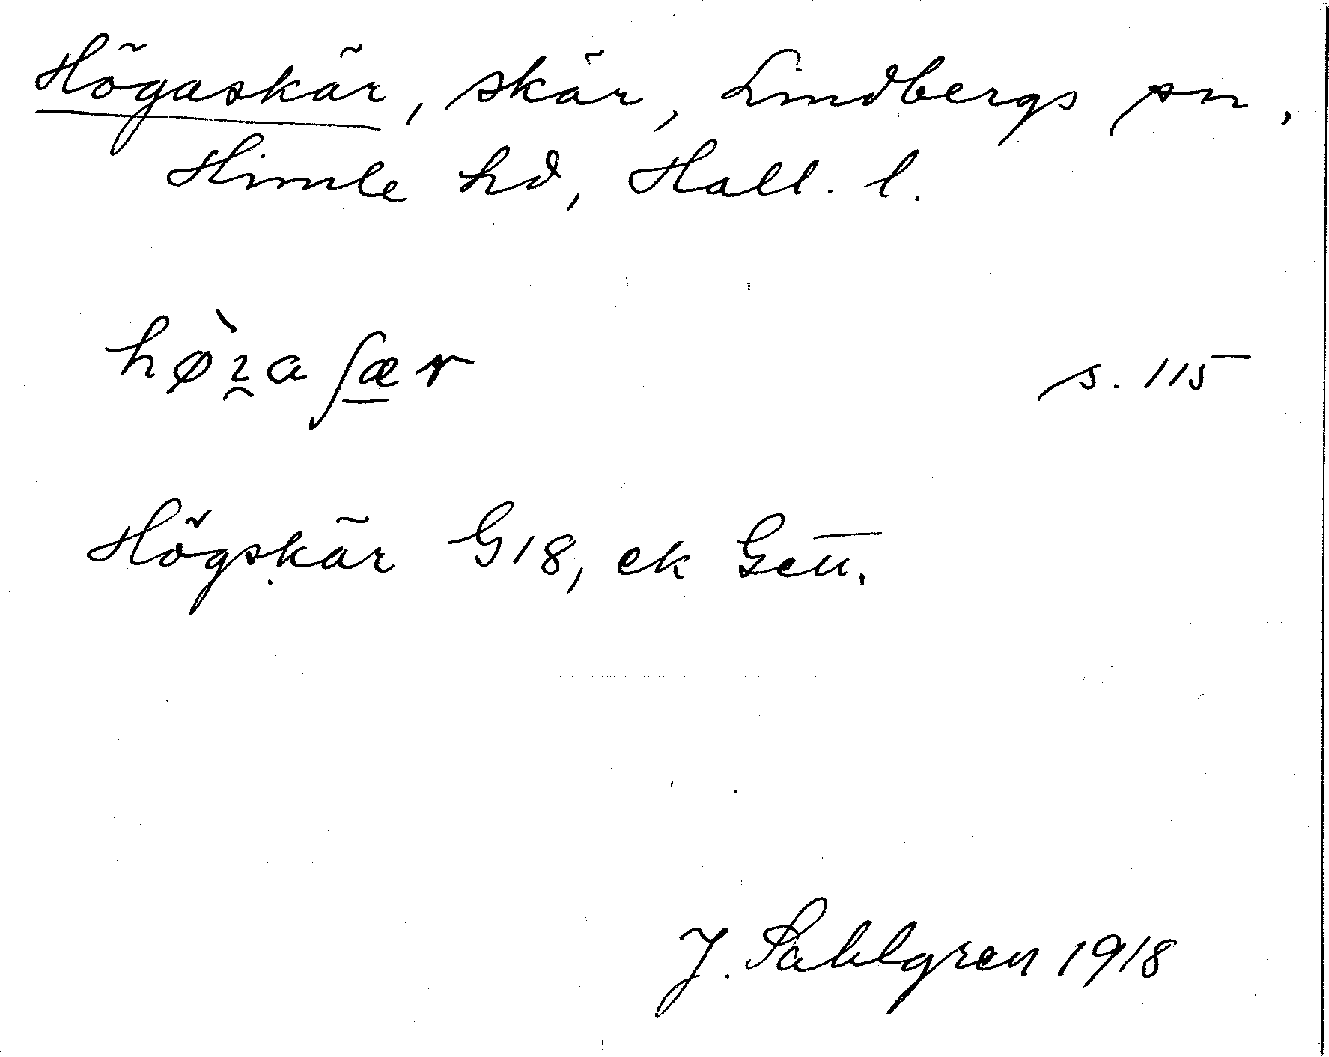 Högaskär, skär, Lindbergs sn,
Himle hd, Hall. l.
s. 115
Högskär G18, ek
J. Sahlgren 1918